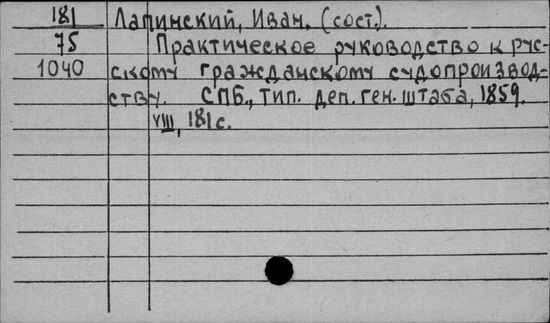 181 Лапинский, Иван. (сост.).
75 Практическое руководство к рус-
1040 скому гражданскому судопроизвод-
ству. СПБ., тип. деп. ген. штаба, 1859.
VIII, 181 с.